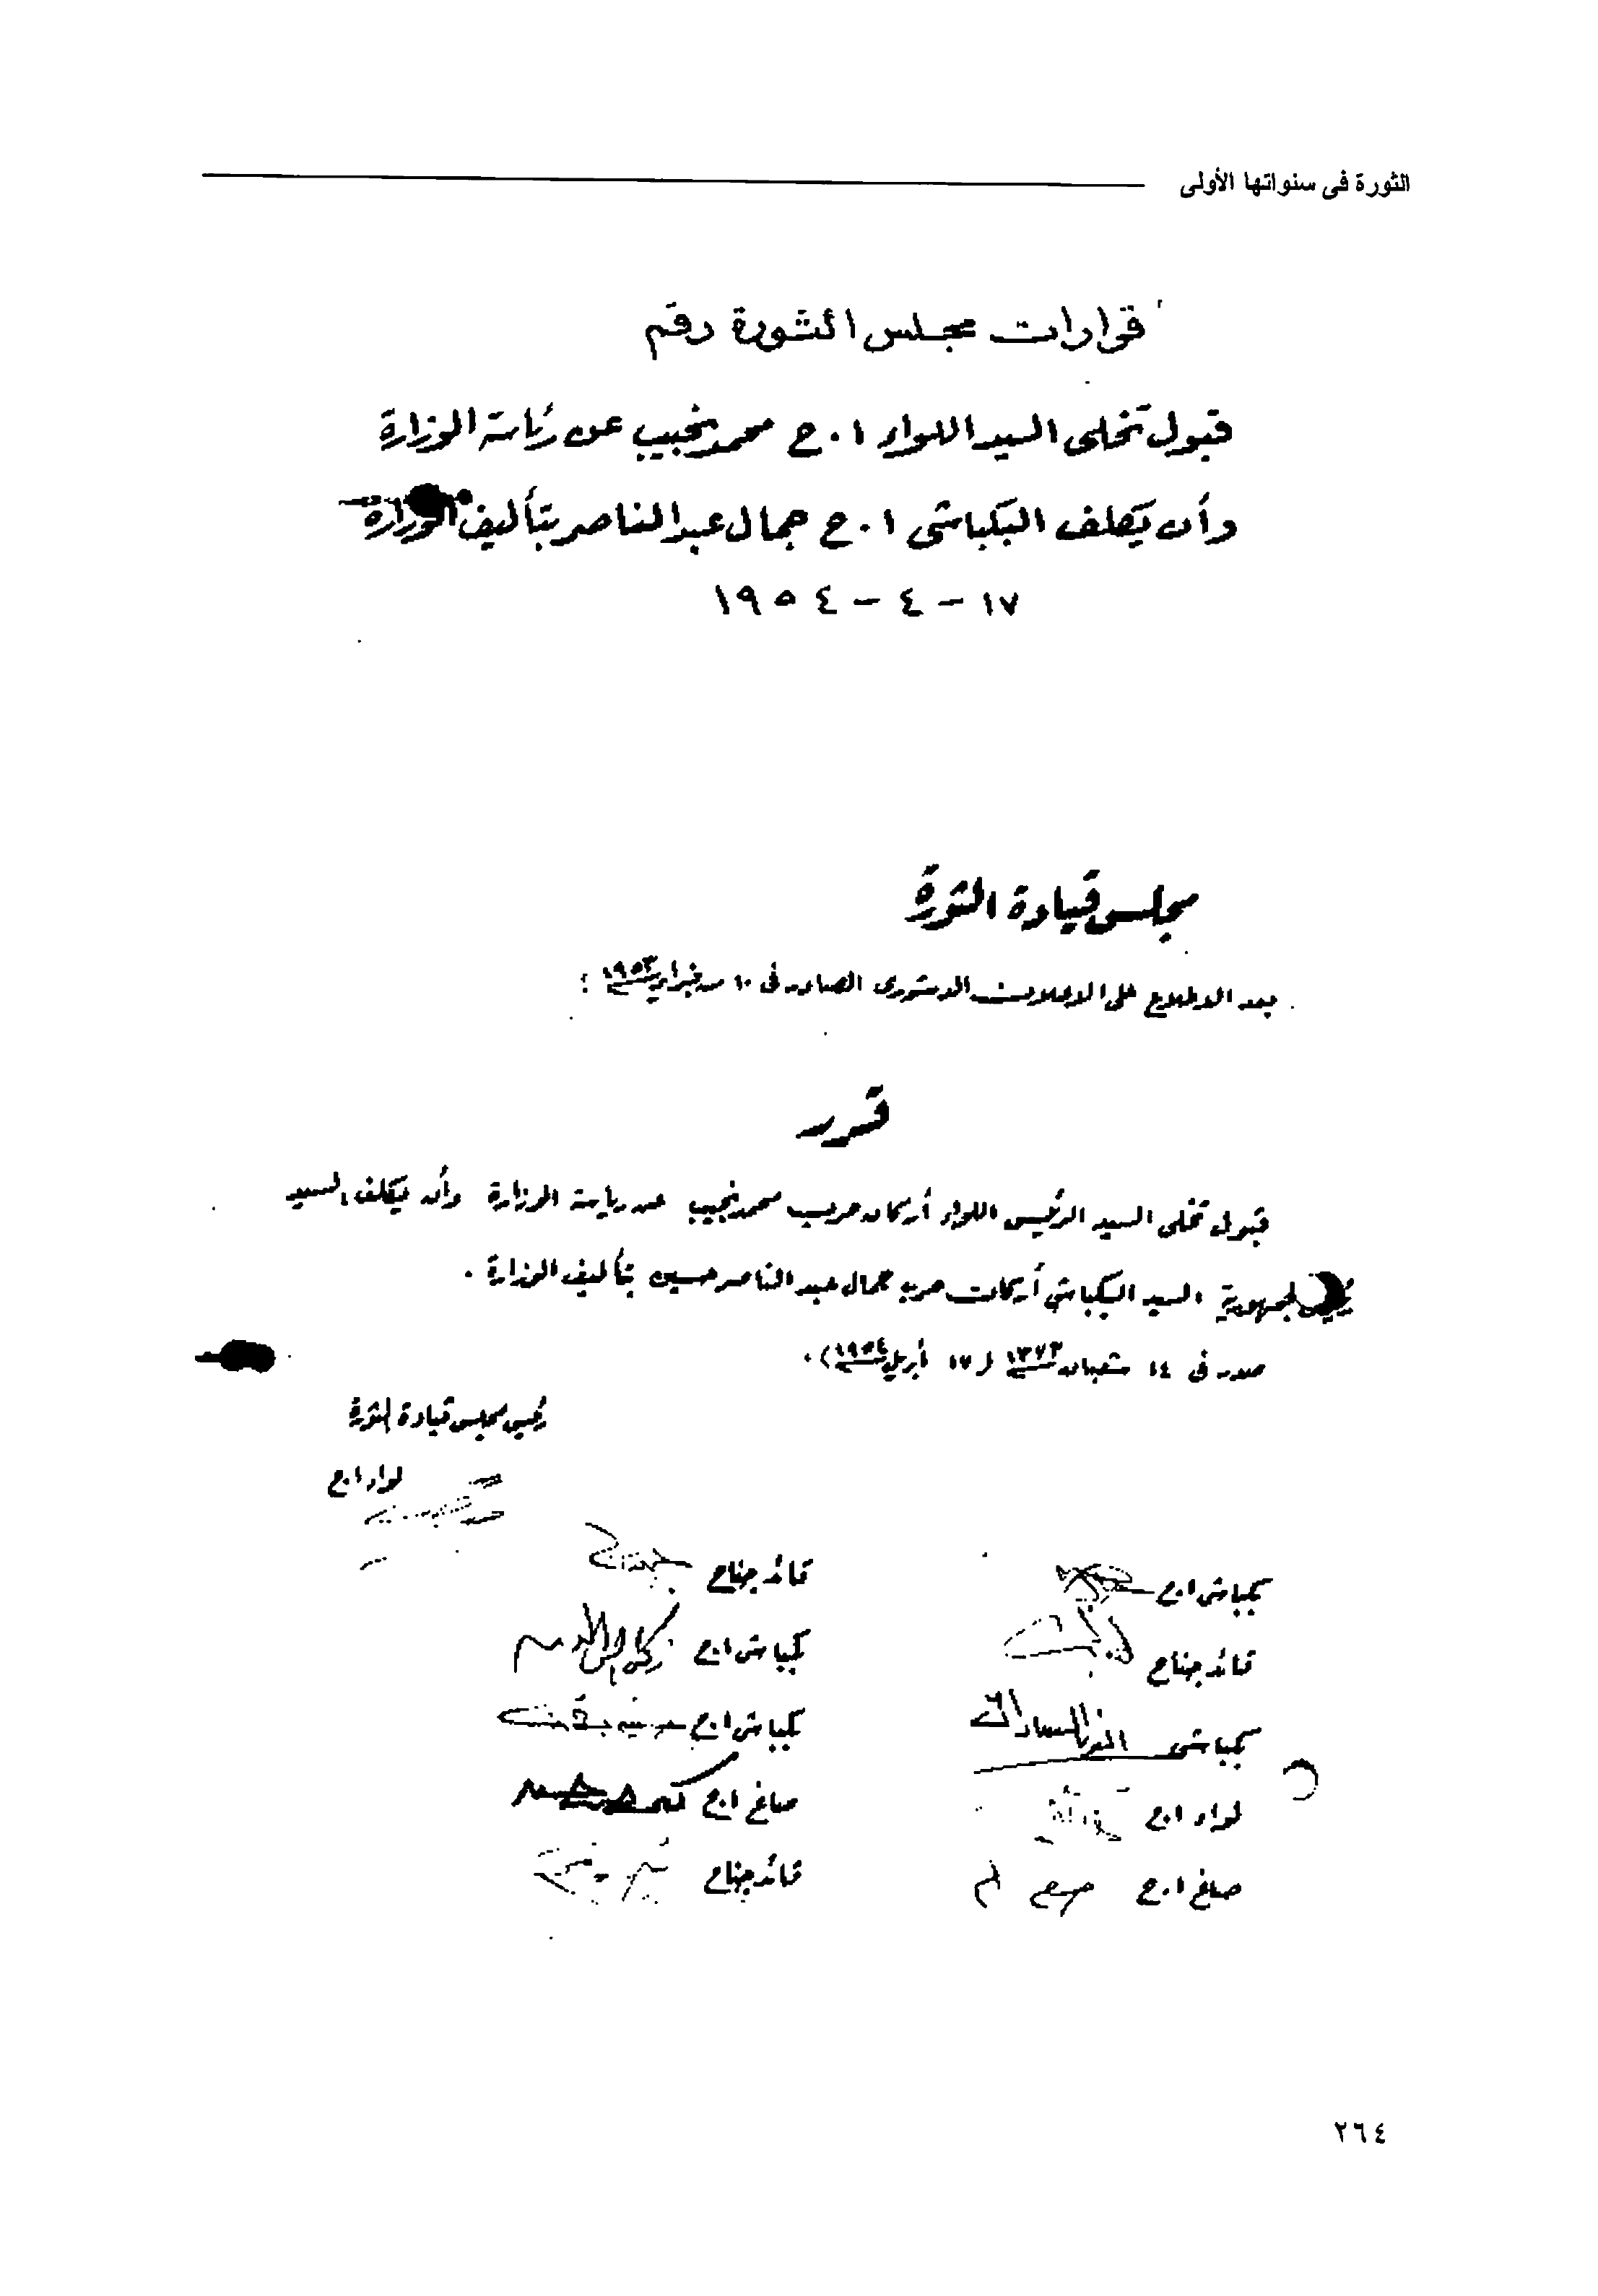 الثورة فى سنواتها الأولى
قرارات مجلس الثورة رقم
قبول تخلى السيد اللواء ا.ح محمد نجيب عن رئاسة الوزارة
وأن يكلف البكباشى ا.ح جمال عبد الناصر بتأليف الوزارة
١٧ - ٤ - ١٩٥٤
مجلس قيادة الثورة
بعد الاطلاع على الاعلان الدستورى الصادر فى ١٠ من فبراير سنة ١٩٥٣ ؛
قرر
قبول تخلى السيد الرئيس اللواء أركان حرب محمد نجيب عن رياسة الوزارة وأن يكلف السيد
رئيس الجمهورية السيد البكباشي أركان حرب جمال عبد الناصر حسين بتأليف الوزارة .
صدر فى ١٤ شعبان سنة ١٣٧٣ (١٧ أبريل سنة ١٩٥٤) .
رئيس مجلس قيادة الثورة
لواء ا.ح
بكباشى ا.ح
قائد جناح
قائد جناح
بكباشى ا.ح زكريا محيى الدين
بكباشى أنور السادات
بكباشى ا.ح
لواء ا.ح
صاغ ا.ح
صاغ ا.ح
قائد جناح
٢٦٤